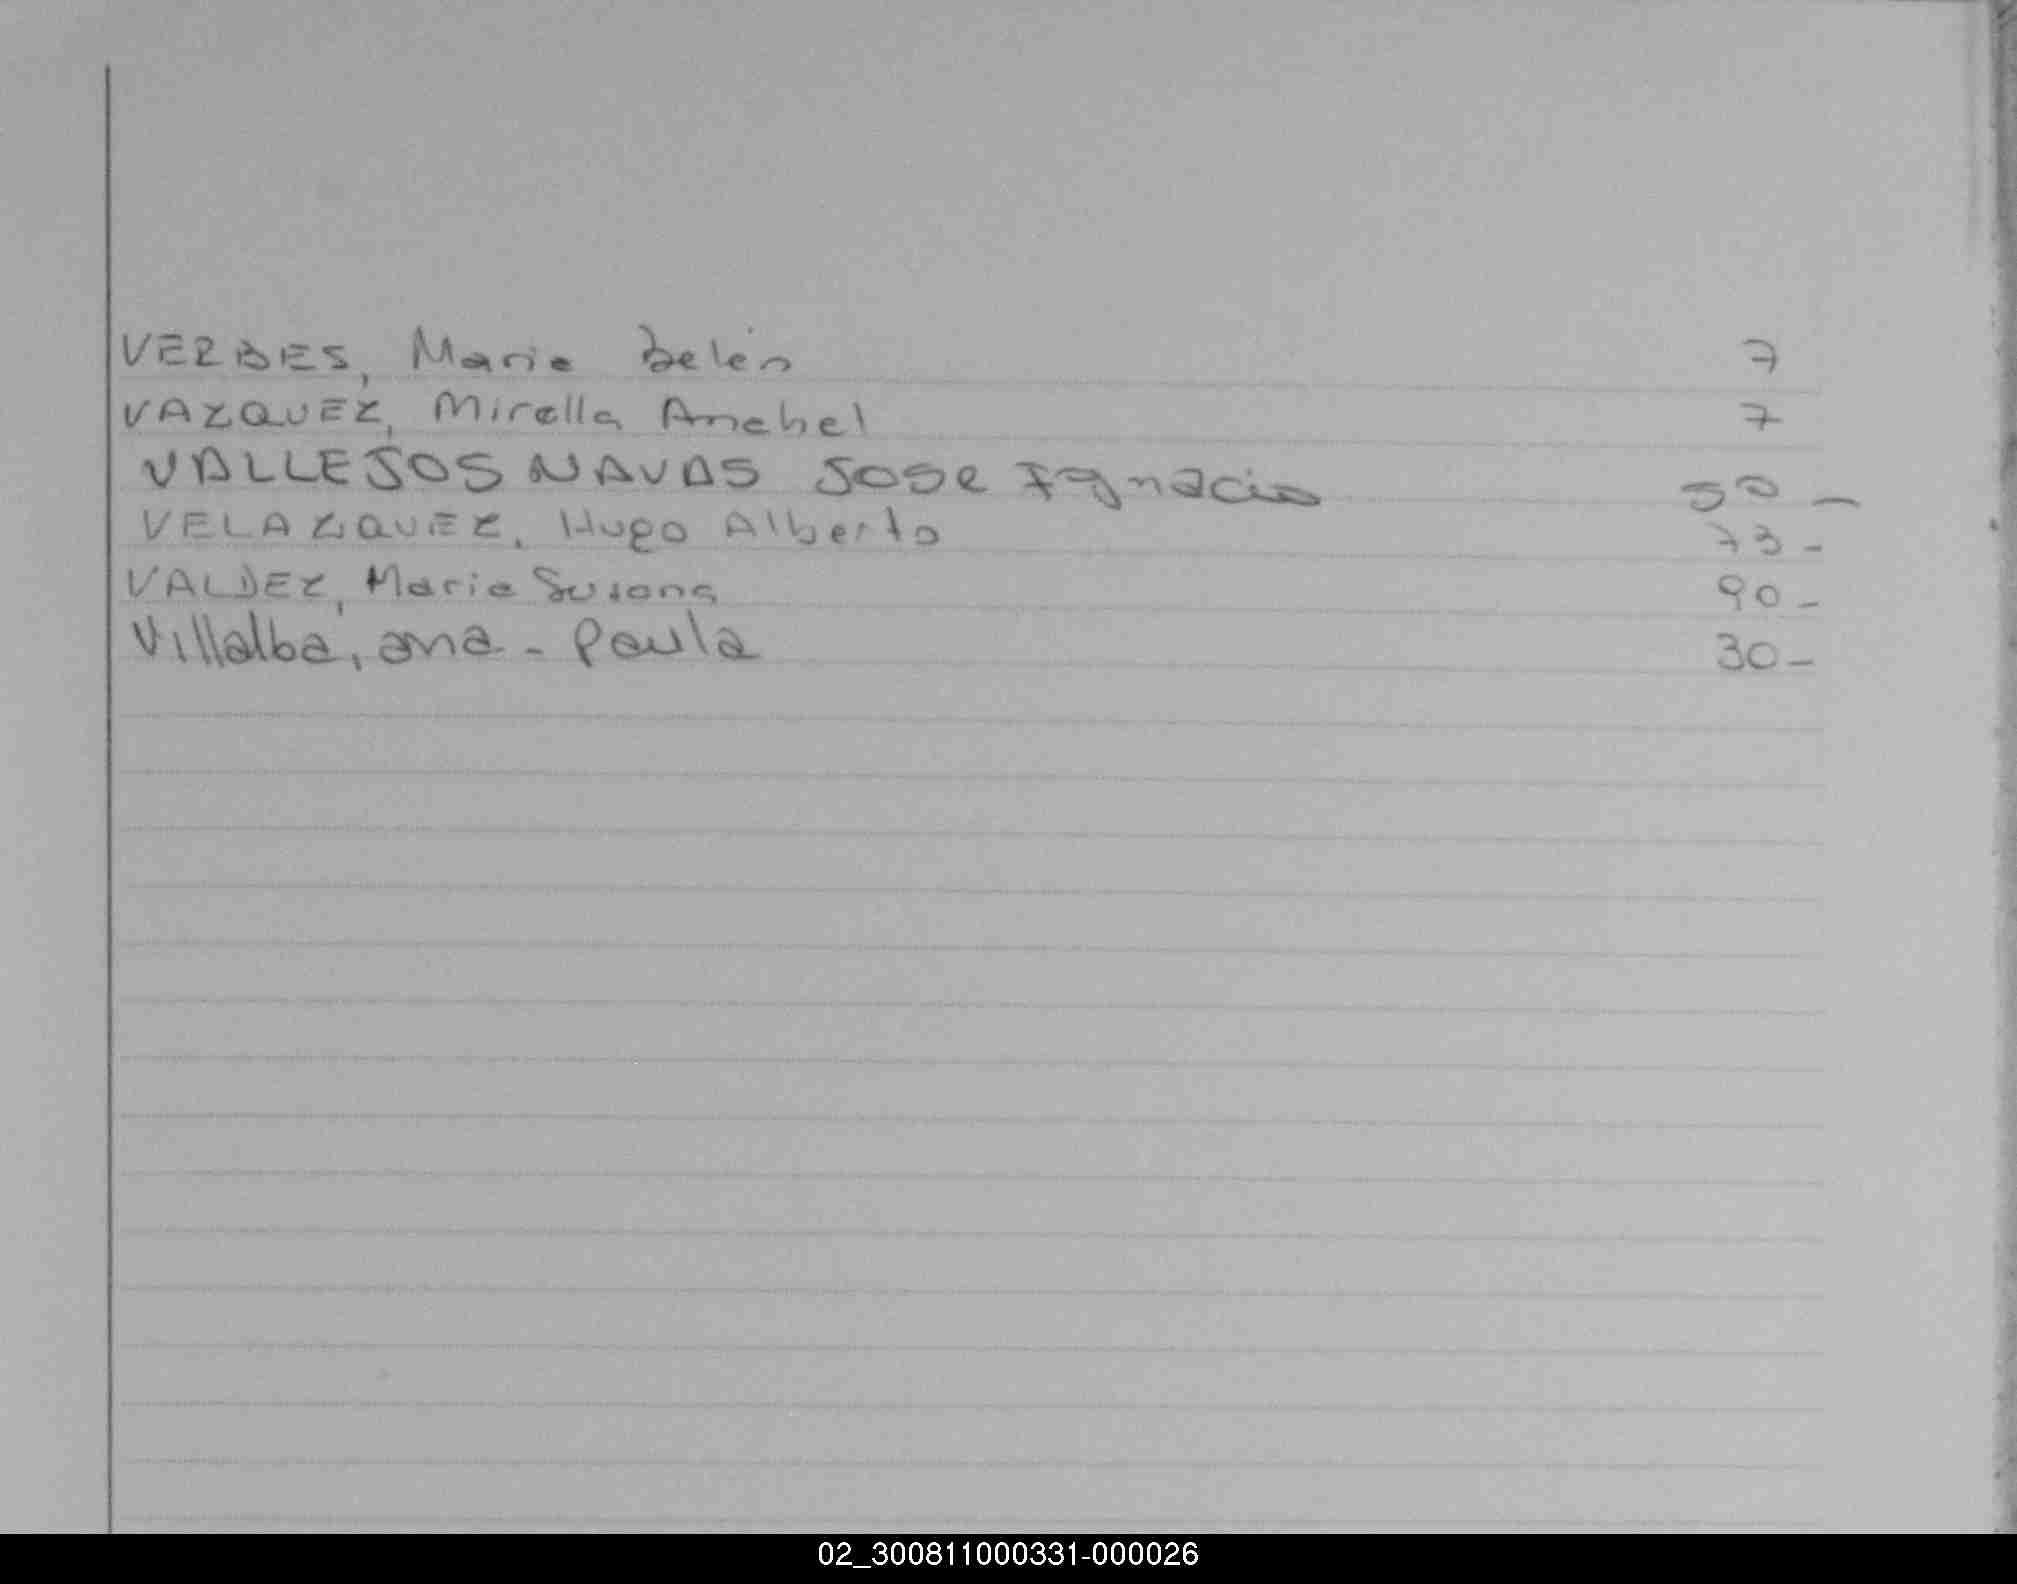 VERBES, Maria Belén 7
VAZQUEZ, Mirella Anabel 7
VALLEJOS NAVAS Jose Ignacio 50 -
VELAZQUEZ, Hugo Alberto 73 -
VALDEZ, Maria Susana 90 -
Villalba, ana - Paula 30 -
02_300811000331-000026